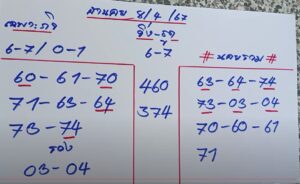 ฮานอย 8/4/67
เฉพาะกิจ
วิ่ง-รูด
6-7/0-1
6-7
# นครราม #
60-61-70
71-63-64
73-74
รอง
03-04
460
374
63-64-74
73-03-04
70-60-61
71